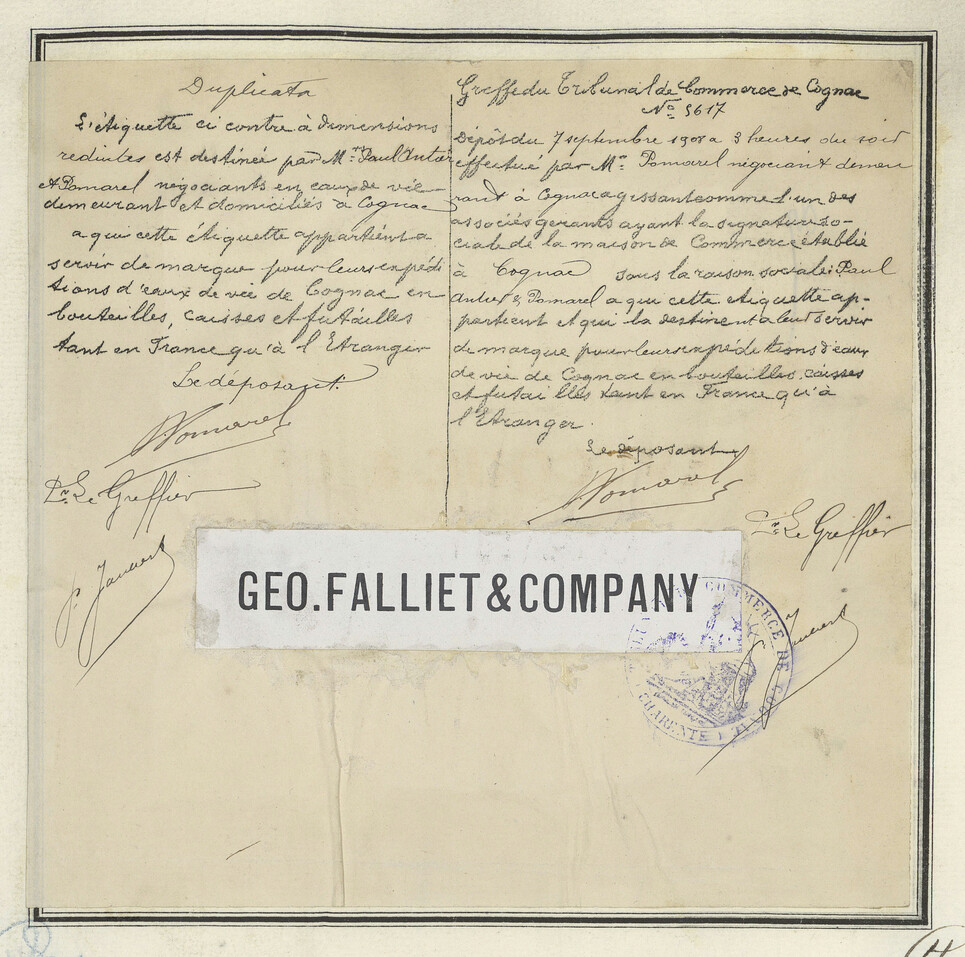 Duplicata
L'étiquette ci contre à dimensions
réduites est destinée par Mrs Paul
et Pomarel négociants en eaux de vie
demeurant et domiciliés à Cognac
a qui cette étiquette appartient a
servir de marque pour leurs expédi
tions d'eaux de vie de Cognac en
bouteilles, caisses et futailles
tant en France qu'à l'Etranger
Le déposant.
Pomarel
Le Greffier
Greffe du Tribunal de Commerce de Cognac
No 5617
Dépôt du 7 septembre 1908 a 3 heures du soir
effectué par Mr Pomarel négociant demeu
rant à Cognac agissant comme l'un des
associés gérants ayant la signature so-
ciale de la maison de Commerce établie
à Cognac sous la raison sociale: Paul
& Pomarel a qui cette étiquette ap-
partient et qui la destinent a leur servir
de marque pour leurs expéditions d'eaux
de vie de Cognac en bouteilles, caisses
et futailles tant en France qu'à
l'Etranger.
Le déposant
Pomarel
Le Greffier
GEO. FALLIET & COMPANY
COMMERCE DE COGNAC
CHARENTE